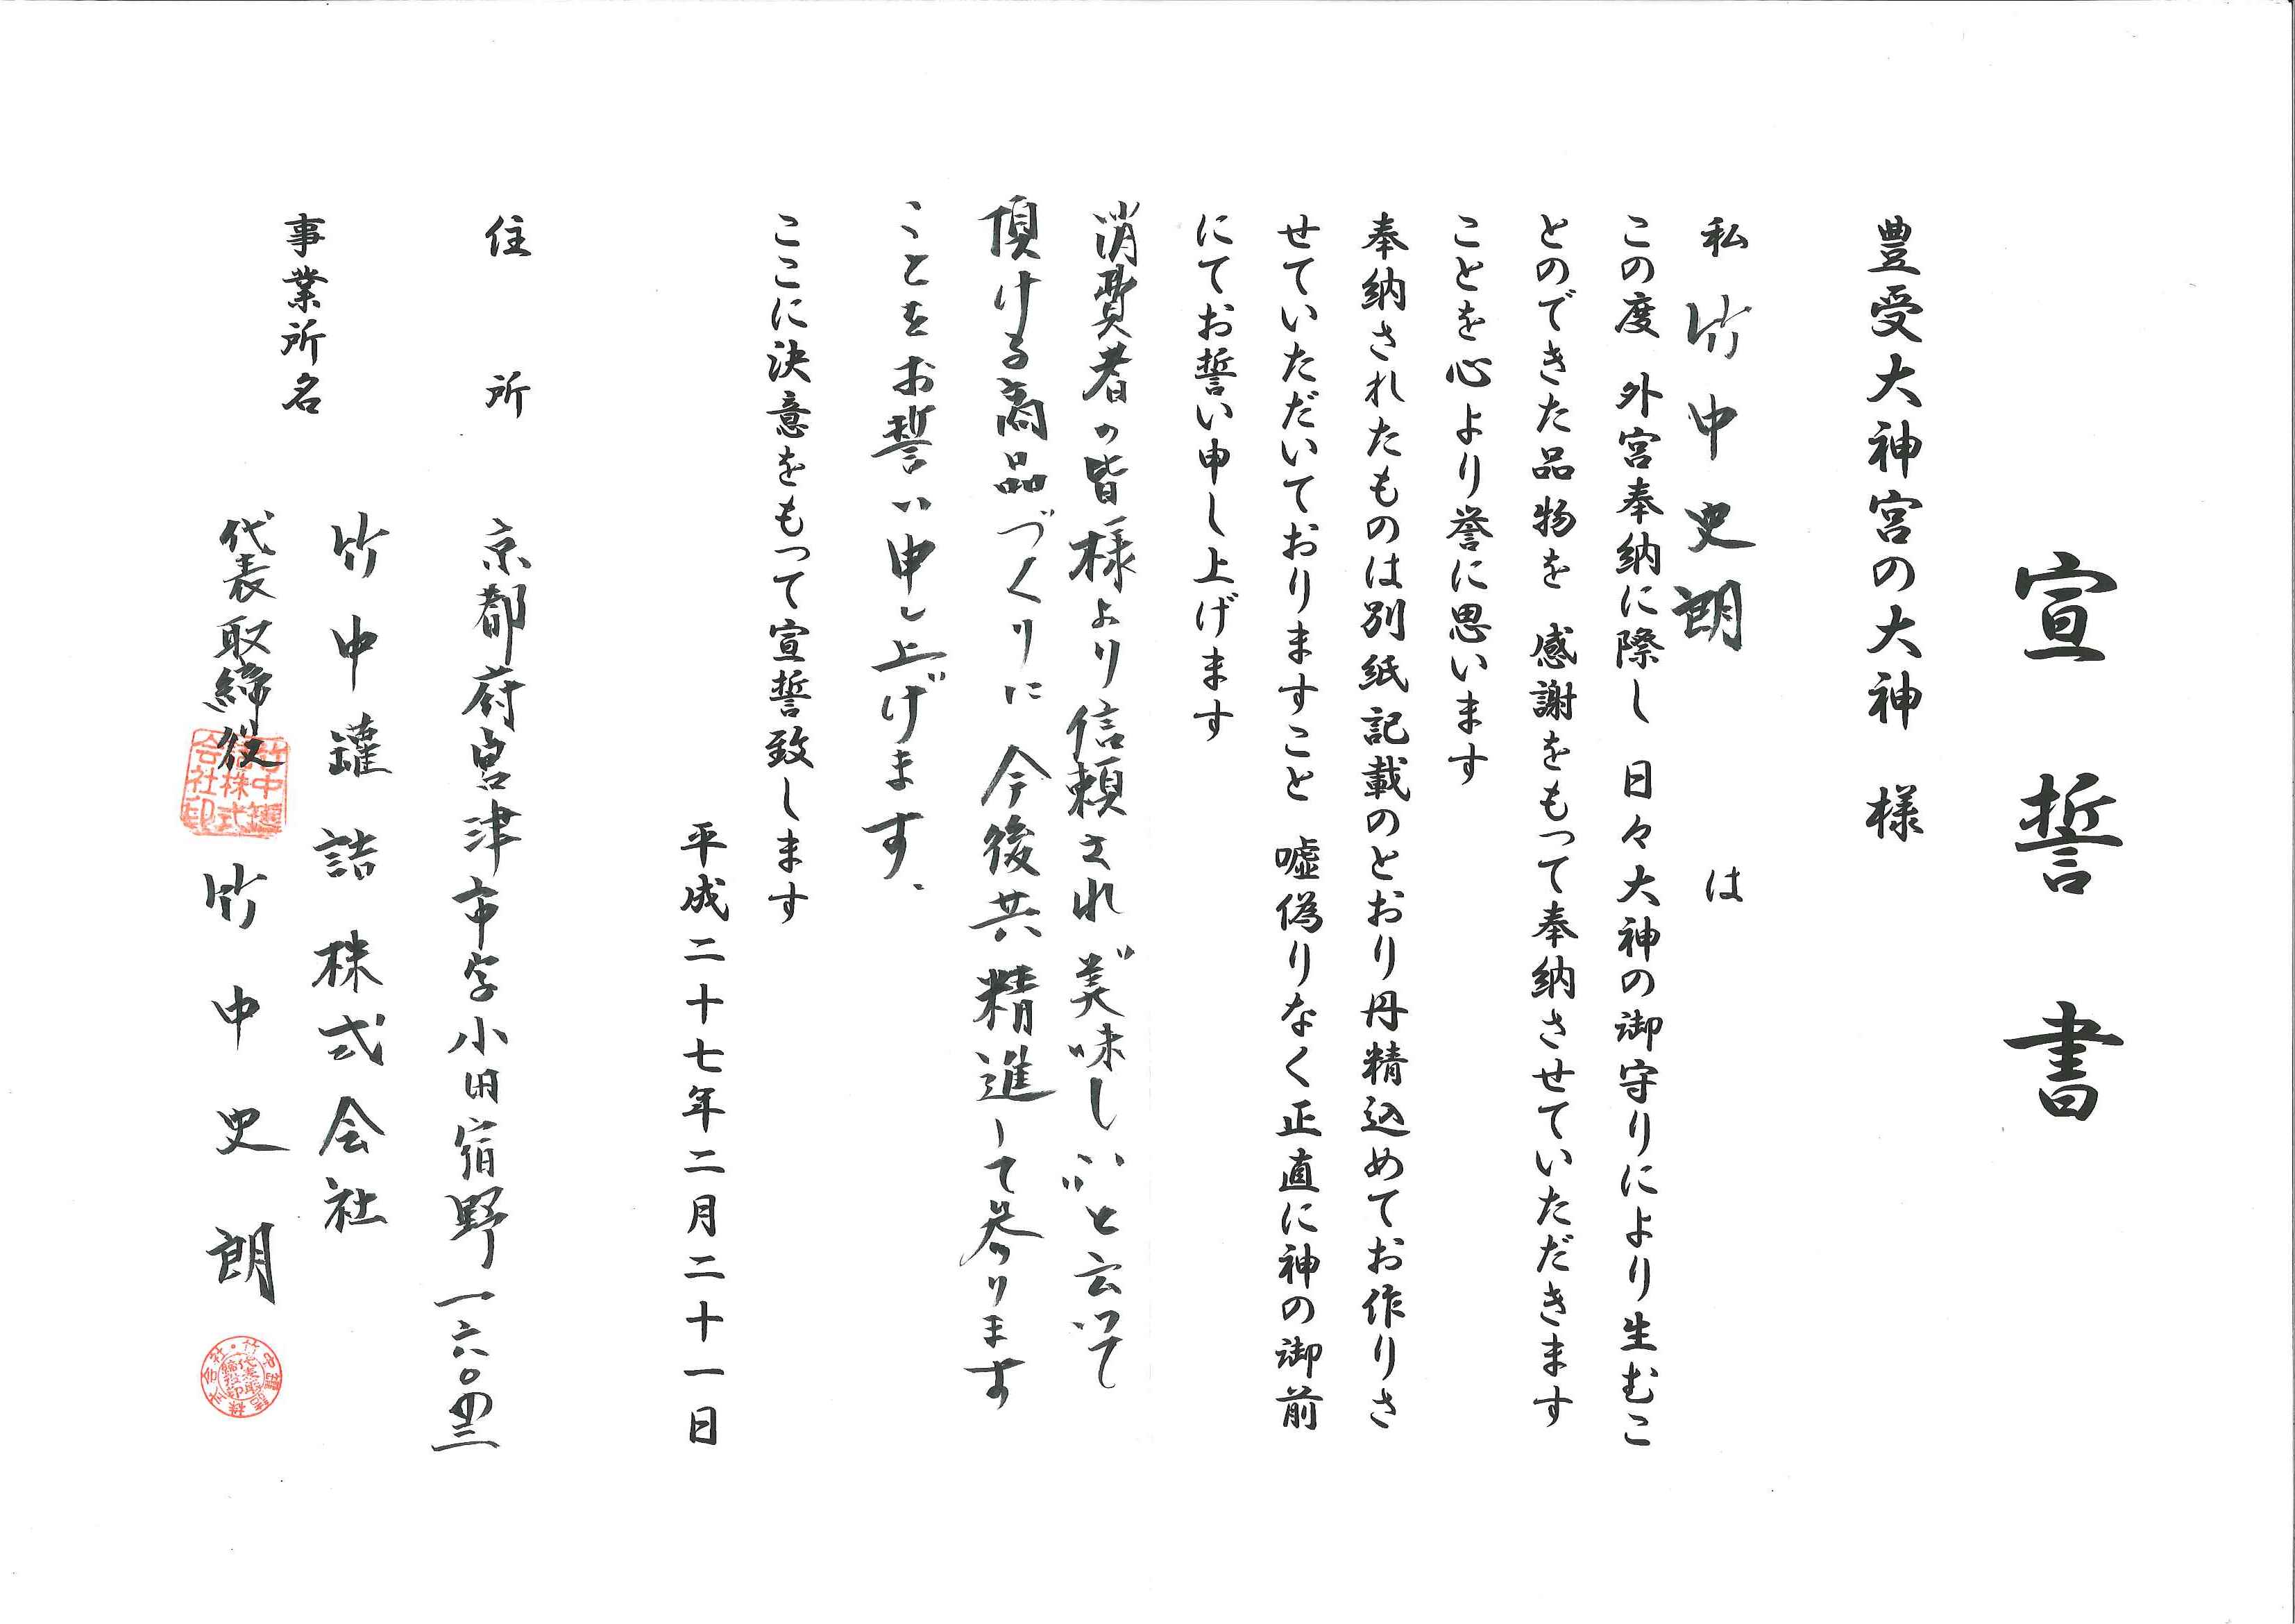 宣誓書
豊受大神宮の大神 様
私 竹中史朗 は
この度 外宮奉納に際し 日々大神の御守りにより生むこ
とのできた品物を 感謝をもって奉納させていただきます
ことを心より誉に思います
奉納されたものは別紙記載のとおり丹精込めてお作りさ
せていただいておりますこと 嘘偽りなく正直に神の御前
にてお誓い申し上げます
消費者の皆様より信頼され〝美味しい〟と云って
頂ける商品づくりに 今後共精進して参ります
ことをお誓い申し上げます、
ここに決意をもって宣誓致します
平成二十七年二月二十一日
住所 京都府宮津市字小田宿野一六〇の四三
事業所名 竹中罐詰株式会社
代表取締役 竹中史朗
竹中罐詰株式会社印
竹中罐詰株式会社
代表取締役印